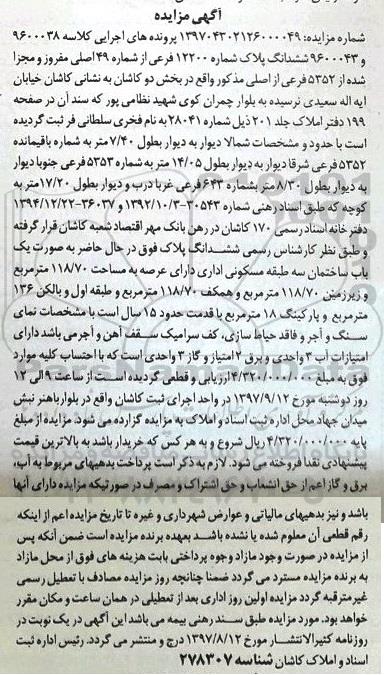 آگهی مزایده
شماره مزایده: ۱۳۹۷۰۴۳۰۲۱۲۶۰۰۰۰۴۹ پرونده های اجرایی کلاسه ۹۶۰۰۰۳۸
و ۹۶۰۰۰۴۳ ششدانگ پلاک شماره ۱۲۲۰۰ فرعی از شماره ۴۹ اصلی مفروز و مجزا
شده از ۵۳۵۲ فرعی از اصلی مذکور واقع در بخش دو کاشان به نشانی کاشان خیابان
ایه اله سعیدی نرسیده به بلوار چمران کوی شهید نظامی پور که سند آن در صفحه
۱۹۹ دفتر املاک جلد ۲۰۱ ذیل شماره ۲۸۰۴۱ به نام فخری سلطانی فر ثبت گردیده
است با حدود و مشخصات شمالا دیوار به دیوار بطول ۷/۴۰ متر به شماره باقیمانده
۵۳۵۲ فرعی شرقا دیوار به دیوار بطول ۱۴/۰۵ متر به شماره ۵۳۵۳ فرعی جنوبا دیوار
به دیوار بطول ۸/۳۰ متر بشماره ۶۴۳ فرعی غربا درب و دیوار بطول ۱۷/۲۰ متر به
کوچه که طبق اسناد رهنی شماره ۳۰۵۴۳-۱۳۹۲/۱۰/۳ و ۳۶۰۳۷-۱۳۹۴/۱۲/۲۲
دفترخانه اسناد رسمی ۱۷۰ کاشان در رهن بانک مهر اقتصاد شعبه کاشان قرار گرفته
و طبق نظر کارشناس رسمی ششدانگ پلاک فوق در حال حاضر به صورت یک
باب ساختمان سه طبقه مسکونی اداری دارای عرصه به مساحت ۱۱۸/۷۰ مترمربع
و زیرزمین ۱۱۸/۷۰ مترمربع و همکف ۱۱۸/۷۰ مترمربع و طبقه اول و بالکن ۱۳۶
مترمربع و پارکینگ ۱۸ مترمربع با قدمت حدود ۱۵ سال است با مشخصات نمای
سنگ و آجر و فاقد حیاط سازی، کف سرامیک سقف آهن و آجر می باشد دارای
امتیازات آب ۳ واحدی و برق ۲ امتیاز و گاز ۳ واحدی است که با احتساب کلیه موارد
فوق به مبلغ ۴/۳۲۰/۰۰۰/۰۰۰ ارزیابی و قطعی گردیده است از ساعت ۹ الی ۱۲
روز دوشنبه مورخ ۱۳۹۷/۹/۱۲ در واحد اجرای ثبت کاشان واقع در بلوار باهنر نبش
میدان جهاد محل اداره ثبت اسناد و املاک به مزایده گزارده می شود. مزایده از مبلغ
پایه ۴/۳۲۰/۰۰۰/۰۰۰ ریال شروع و به هر کس که خریدار باشد به بالاترین قیمت
پیشنهادی نقدا فروخته می شود. لازم به ذکر است پرداخت بدهیهای مربوط به آب،
برق و گاز اعم از حق انشعاب و حق اشتراک و مصرف در صورتیکه مزایده دارای آنها
باشد و نیز بدهیهای مالیاتی و عوارض شهرداری و غیره تا تاریخ مزایده اعم از اینکه
رقم قطعی آن معلوم شده یا نشده باشد بعهده برنده مزایده است ضمن آنکه پس
از مزایده در صورت وجود مازاد وجوه پرداختی بابت هزینه های فوق از محل مازاد
به برنده مزایده مسترد می گردد ضمنا چنانچه روز مزایده مصادف با تعطیل رسمی
غیرمترقبه گردد مزایده اولین روز اداری بعد از تعطیلی در همان ساعت و مکان مقرر
خواهد بود. مورد مزایده طبق سند رهنی بیمه می باشد این آگهی در یک نوبت در
روزنامه کثیرالانتشار مورخ ۱۳۹۷/۸/۱۲ درج و منتشر می گردد. رئیس اداره ثبت
اسناد و املاک کاشان شناسه ۲۷۸۳۰۷